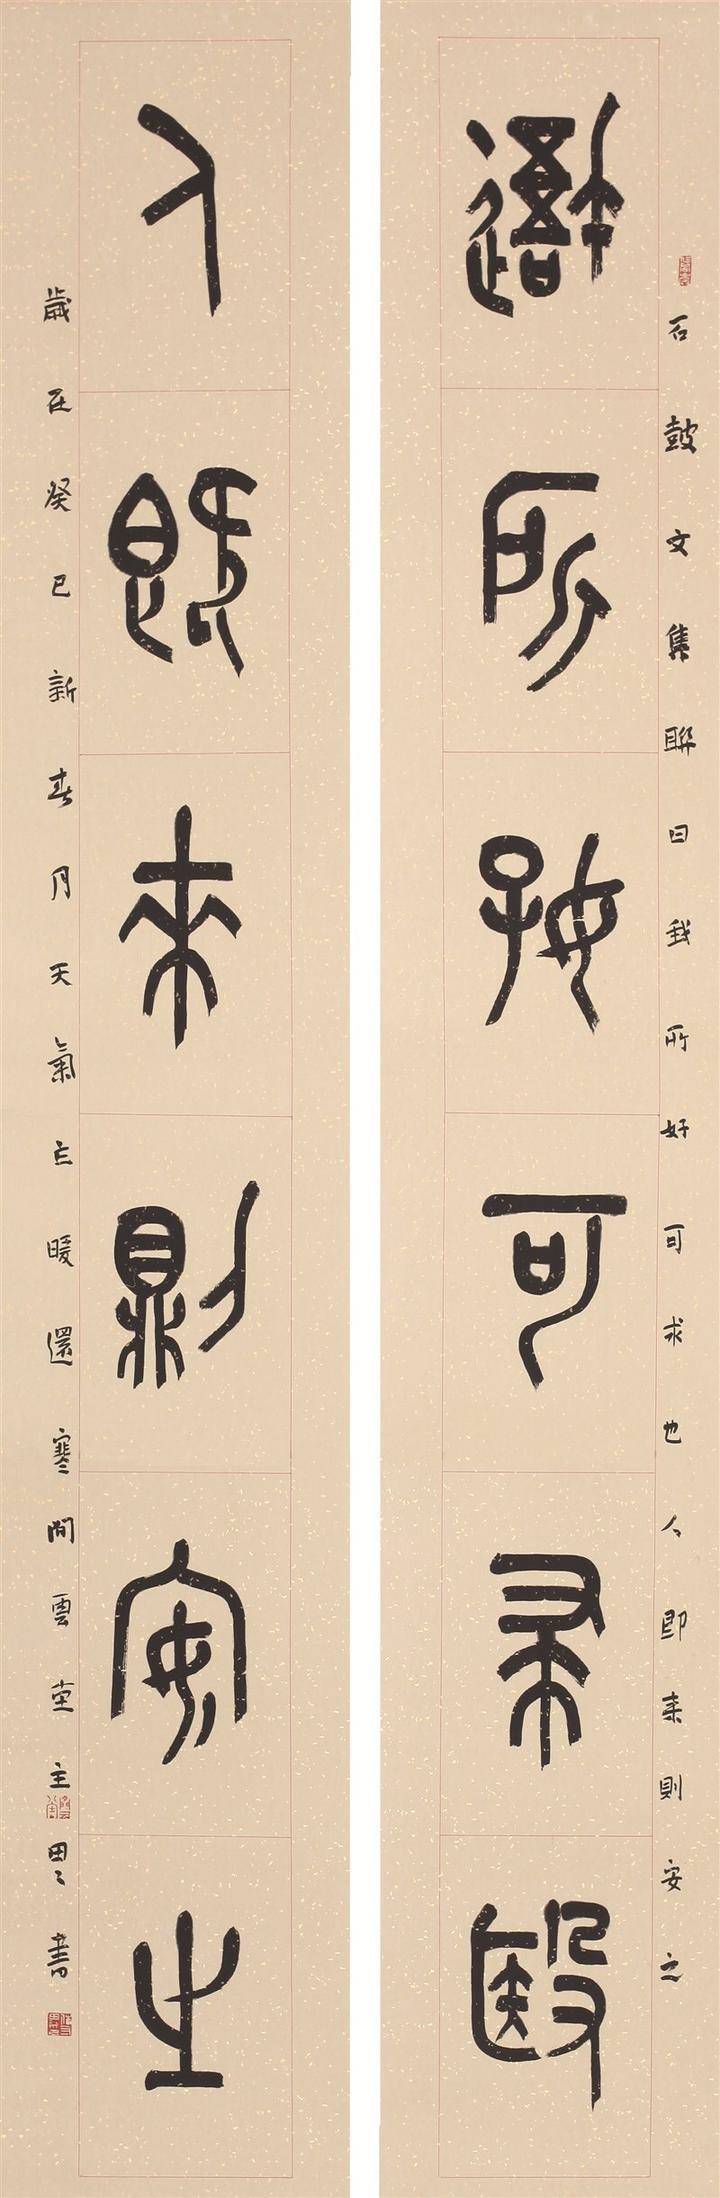 石鼓文集聯曰我所好可求也人即来則安之
所好可求殹
人既來則安之
歲在癸巳新春月天氣乍暖還寒閒雲堂主書